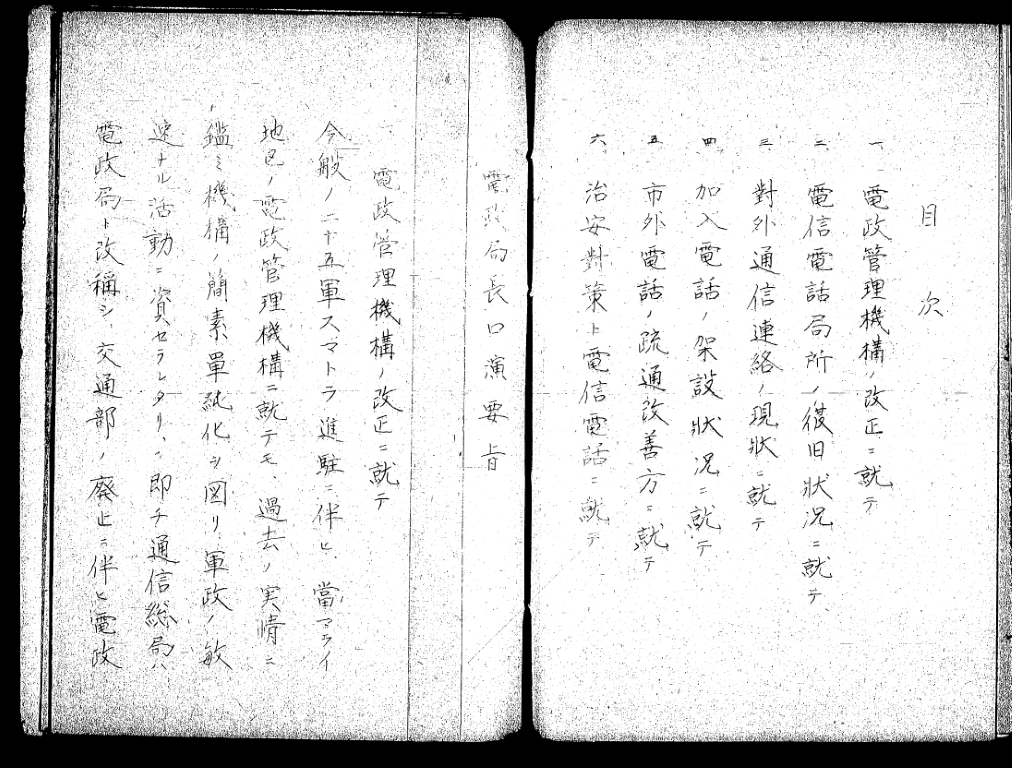 目次
一 電政管理機構ノ改正ニ就テ
二 電信電話局所ノ復旧狀況ニ就テ
三 對外通信連絡ノ現狀ニ就テ
四 加入電話ノ架設狀況ニ就テ
五 市外電話ノ疏通改善方ニ就テ
六 治安對策ト電信電話ニ就テ
電政局長口演要旨
一、電政管理機構ノ改正ニ就テ
今般ノ二十五軍スマトラ進駐ニ伴ヒ、當マライ
地区ノ電政管理機構ニ就テモ、過去ノ実情ニ
鑑ミ機構ノ簡素單純化ヲ図リ、軍政ノ敏
速ナル活動ニ資セラレタリ、即チ通信総局ハ
電政局ト改稱シ、交通部ノ廃止ニ伴ヒ電政